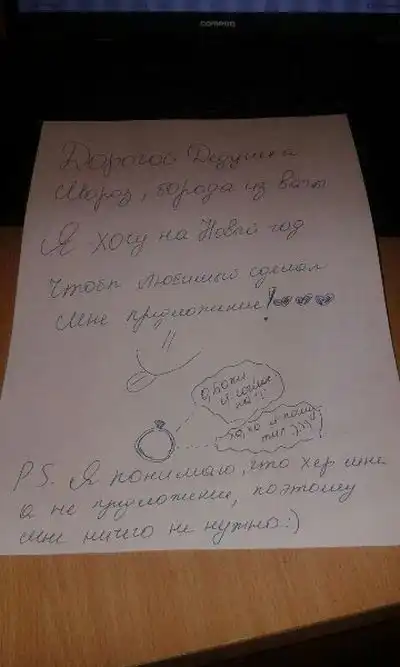 compaq
Дорогой Дедушка
Мороз, борода из ваты
Я хочу на Новый год
Чтобы любимый сделал
мне предложение!
о, Боже
я согласна!!!
P.S. Я понимаю, что хер мне
а не предложение, поэтому
мне ничего не нужно :)